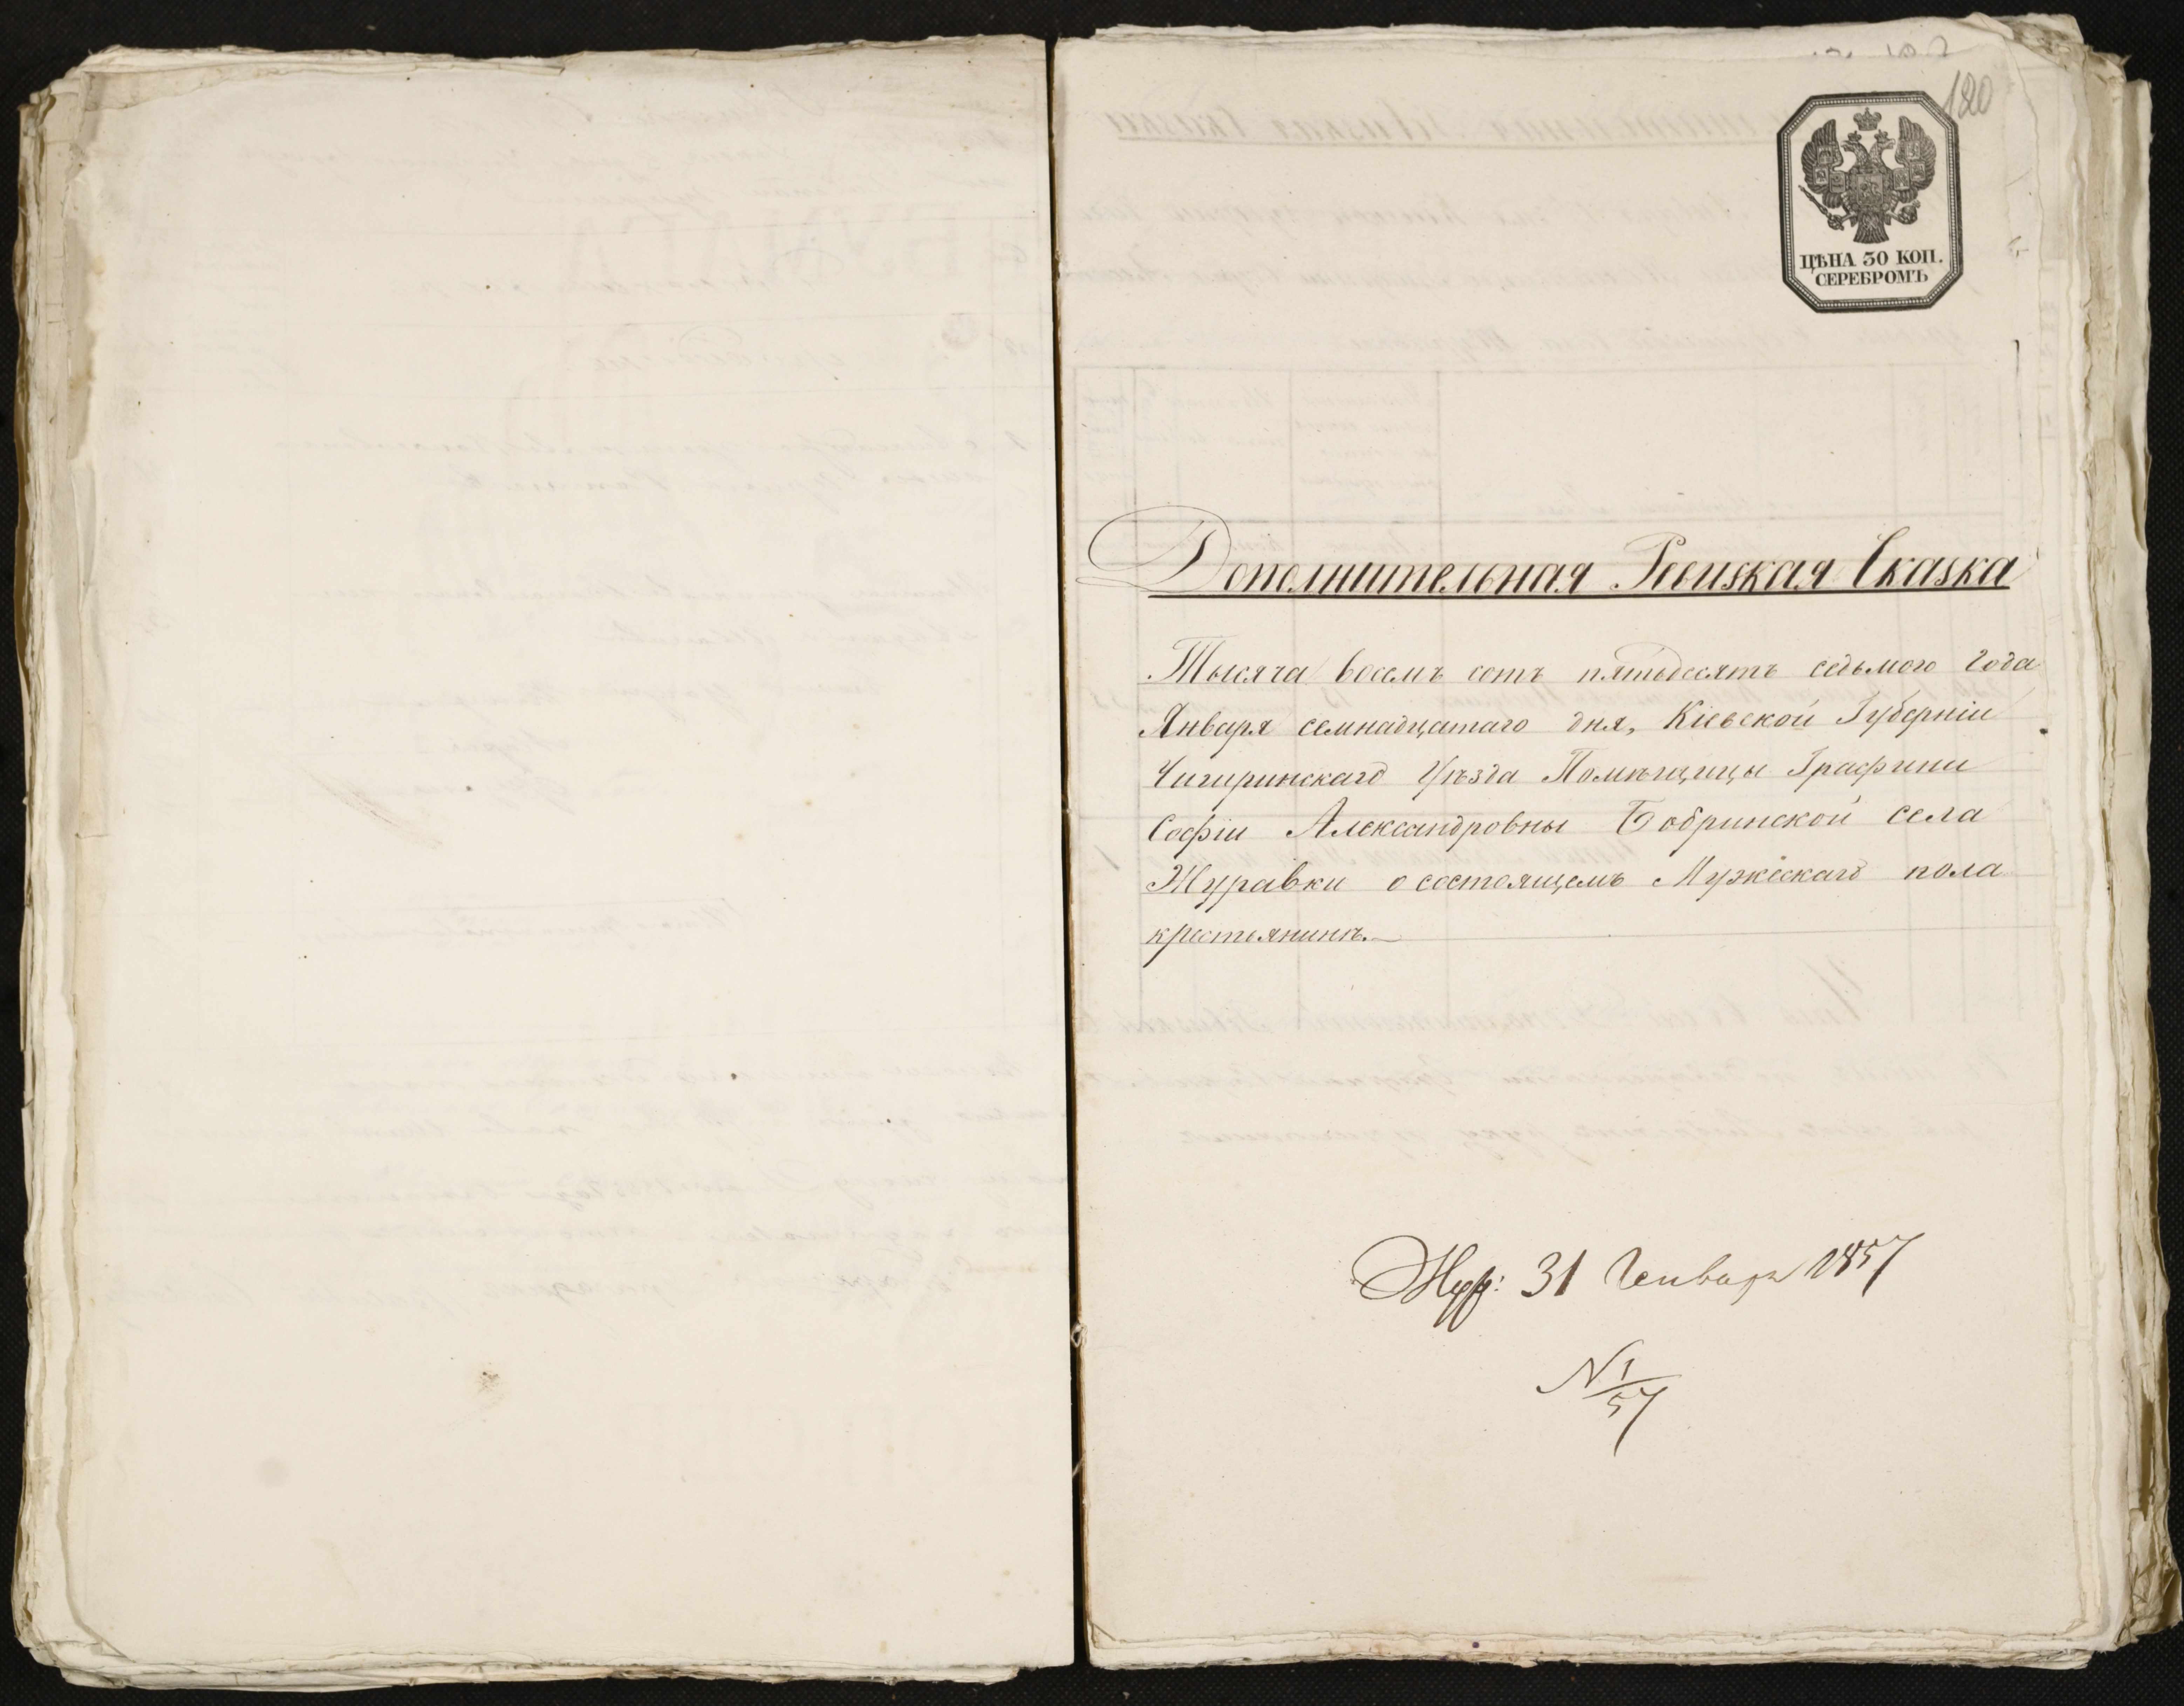 180
ЦѢНА 30 КОП.
СЕРЕБРОМЪ
Дополнительная Ревизкая Сказка
Тысяча восемъ сотъ пятьдесятъ седьмого года
Января семнадцатаго дня, Кіевской Губерніи
Чигиринскаго Уѣзда Помѣщицы Графини
Софіи Александровны Бобринской села
Журавки о состоящемъ Мужескаго пола
крестьянинѣ.
Жур: 31 Генваря 1857
N 1/57